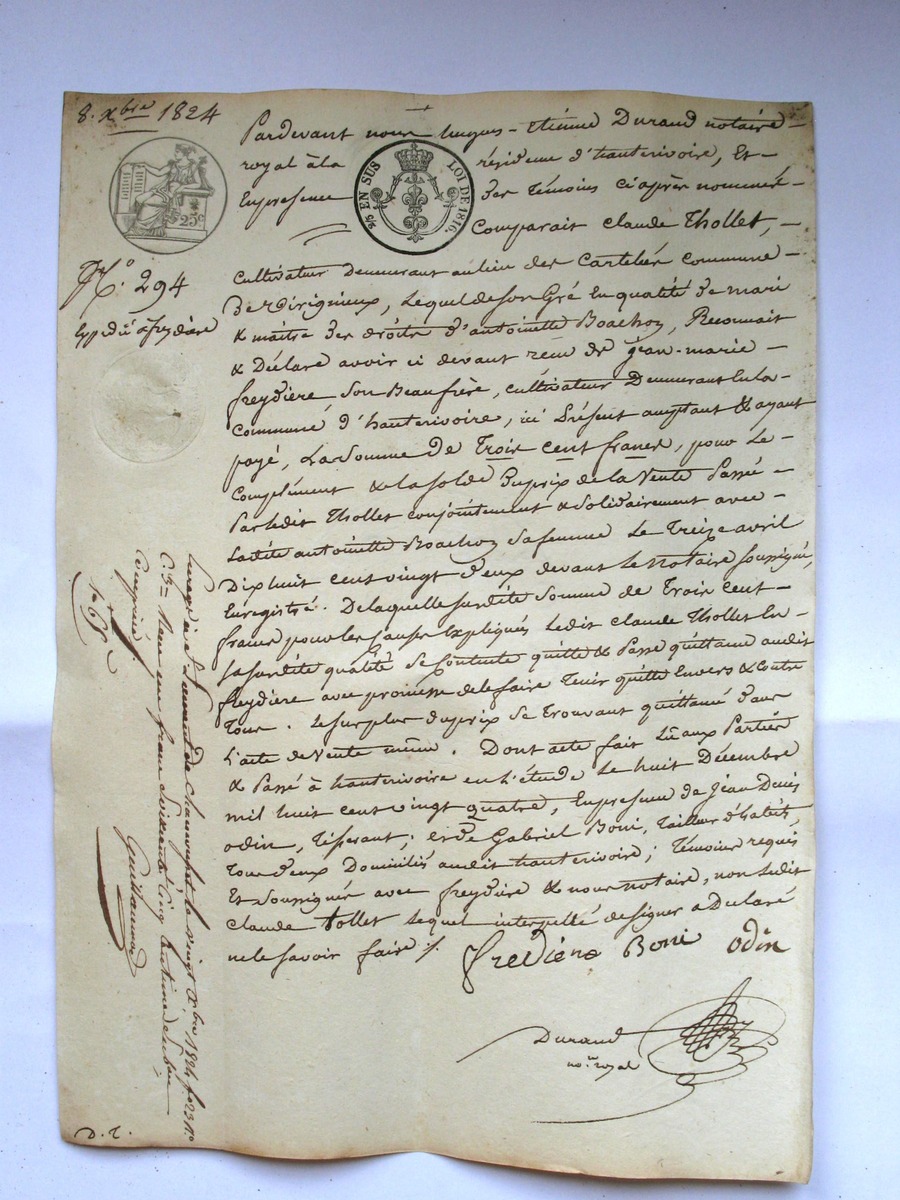 8. Xbre 1824
Pardevant nous hugues-étienne Durand notaire
royal à la résidence d'hauterivoire, Et
En presence des témoins ci après nommés
Comparait Claude Thollet,
25c
2/5 EN SUS LOI DE 1816.
N.o 294
Expedié à freydière
cultivateur Demeurant au lieu des Carteliés commune
De Virigneux, Lequel de son Gré En qualité de mari
& maître des droits d'antoinette Boachon, Reconnait
& Déclare avoir ci devant reçu de jean-marie
freydière Son Beau frère, cultivateur Demeurant En la
commune d'hauterivoire, ici Présent acceptant & ayant
payé, La Somme de Trois cent francs, pour Le
Complément & la solde Du prix de la Vente Passée
Par ledit Thollet conjointement & Solidairement avec
Ladite antoinette Boachon Sa femme Le Treize avril
Dix huit cent vingt Deux devant Le Notaire Soussigné,
Enregistré. De laquelle Susdite Somme de Trois cent
francs pour les causes Expliqués Ledit Claude Thollet En
Sa susdite qualité Se Contente quitte & Passe quittance audit
freydière avec promesse de le faire Tenir quitte Envers & Contre
Tous. Le Surplus du prix Se Trouvant quittancé dans
L'acte de Vente même. Dont acte fait Lû aux Parties
& Passé à hauterivoire en L'étude Le huit Décembre
mil huit cent vingt quatre, En presence de Jean Denis
odin, Tisserant; et de Gabriel Boni, Tailleur d'habits,
Tous deux Domiciliés audit hauterivoire; Témoins requis
Et Soussignés avec freydière & nous notaire, non Ledit
Claude tollet Lequel interpellé de signer a Déclaré
ne le Savoir faire ./.
freidière Boni odin
Durand
nore royal
Enregistré à St Laurent de Chamousset le vingt Xbre 1824 fo 23 Ro
C. 3e Reçu un franc Soixante Cinq Centimes subon
Compris
1f 65c
Guillaumod
D. T.